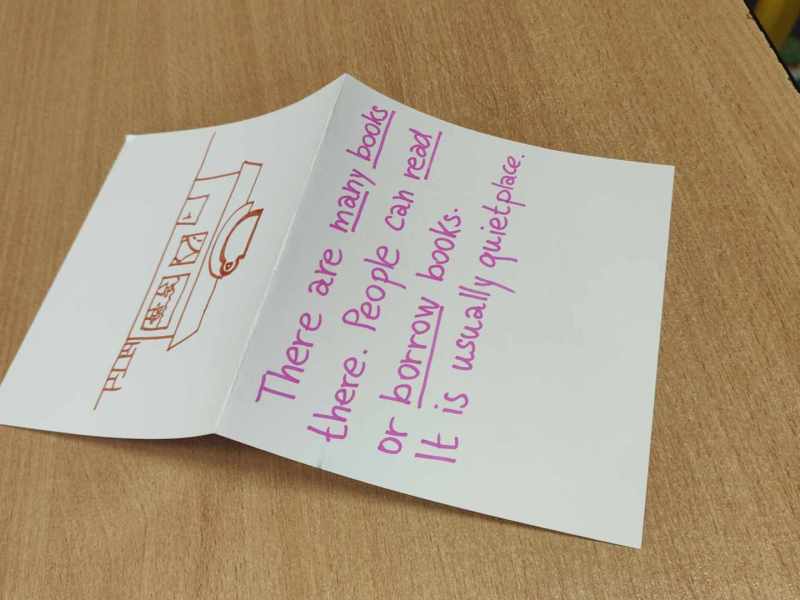 There are many books
there. People can read
or borrow books.
It is usually quiet place.